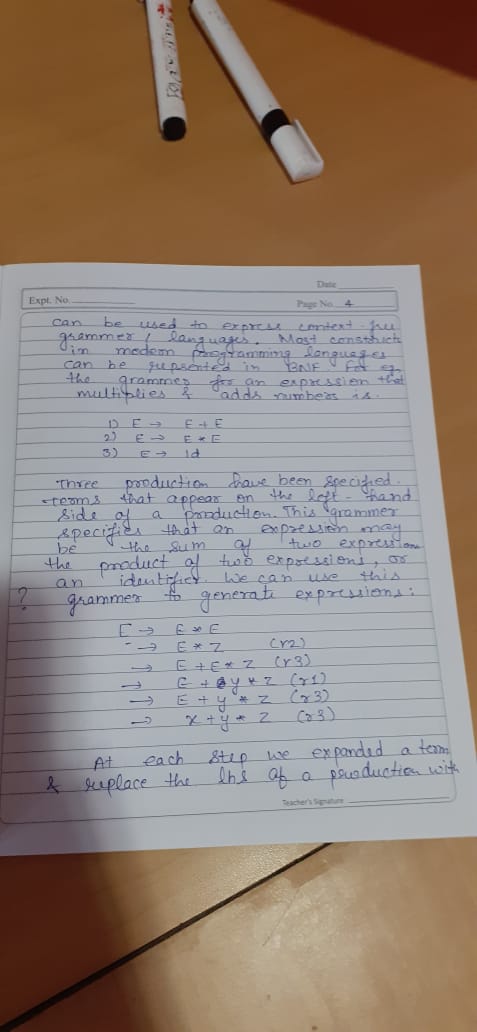 Date
Expt. No.
Page No. 4
can be used to express context-free
grammer / languages. Most constrict
in modern programming languages
can be repsented in BNF For eg
the grammer for an expression that
multiplies & adds numbers is.
1) E → E + E
2) E → E * E
3) E → Id
Three production have been specified.
terms that appear on the left-hand
side of a production. This grammer
specifies that an expression may
be the sum of two expression
the product of two expressions, or
an identifier. We can use this
? grammer to generate expressions:
E → E * E
→ E * Z (r2)
→ E + E * Z (r3)
→ E + y * Z (r1)
→ E + y * Z (r3)
→ x + y * Z (r3)
At each step we expanded a term
& replace the lhs of a production with
Teacher's Signature